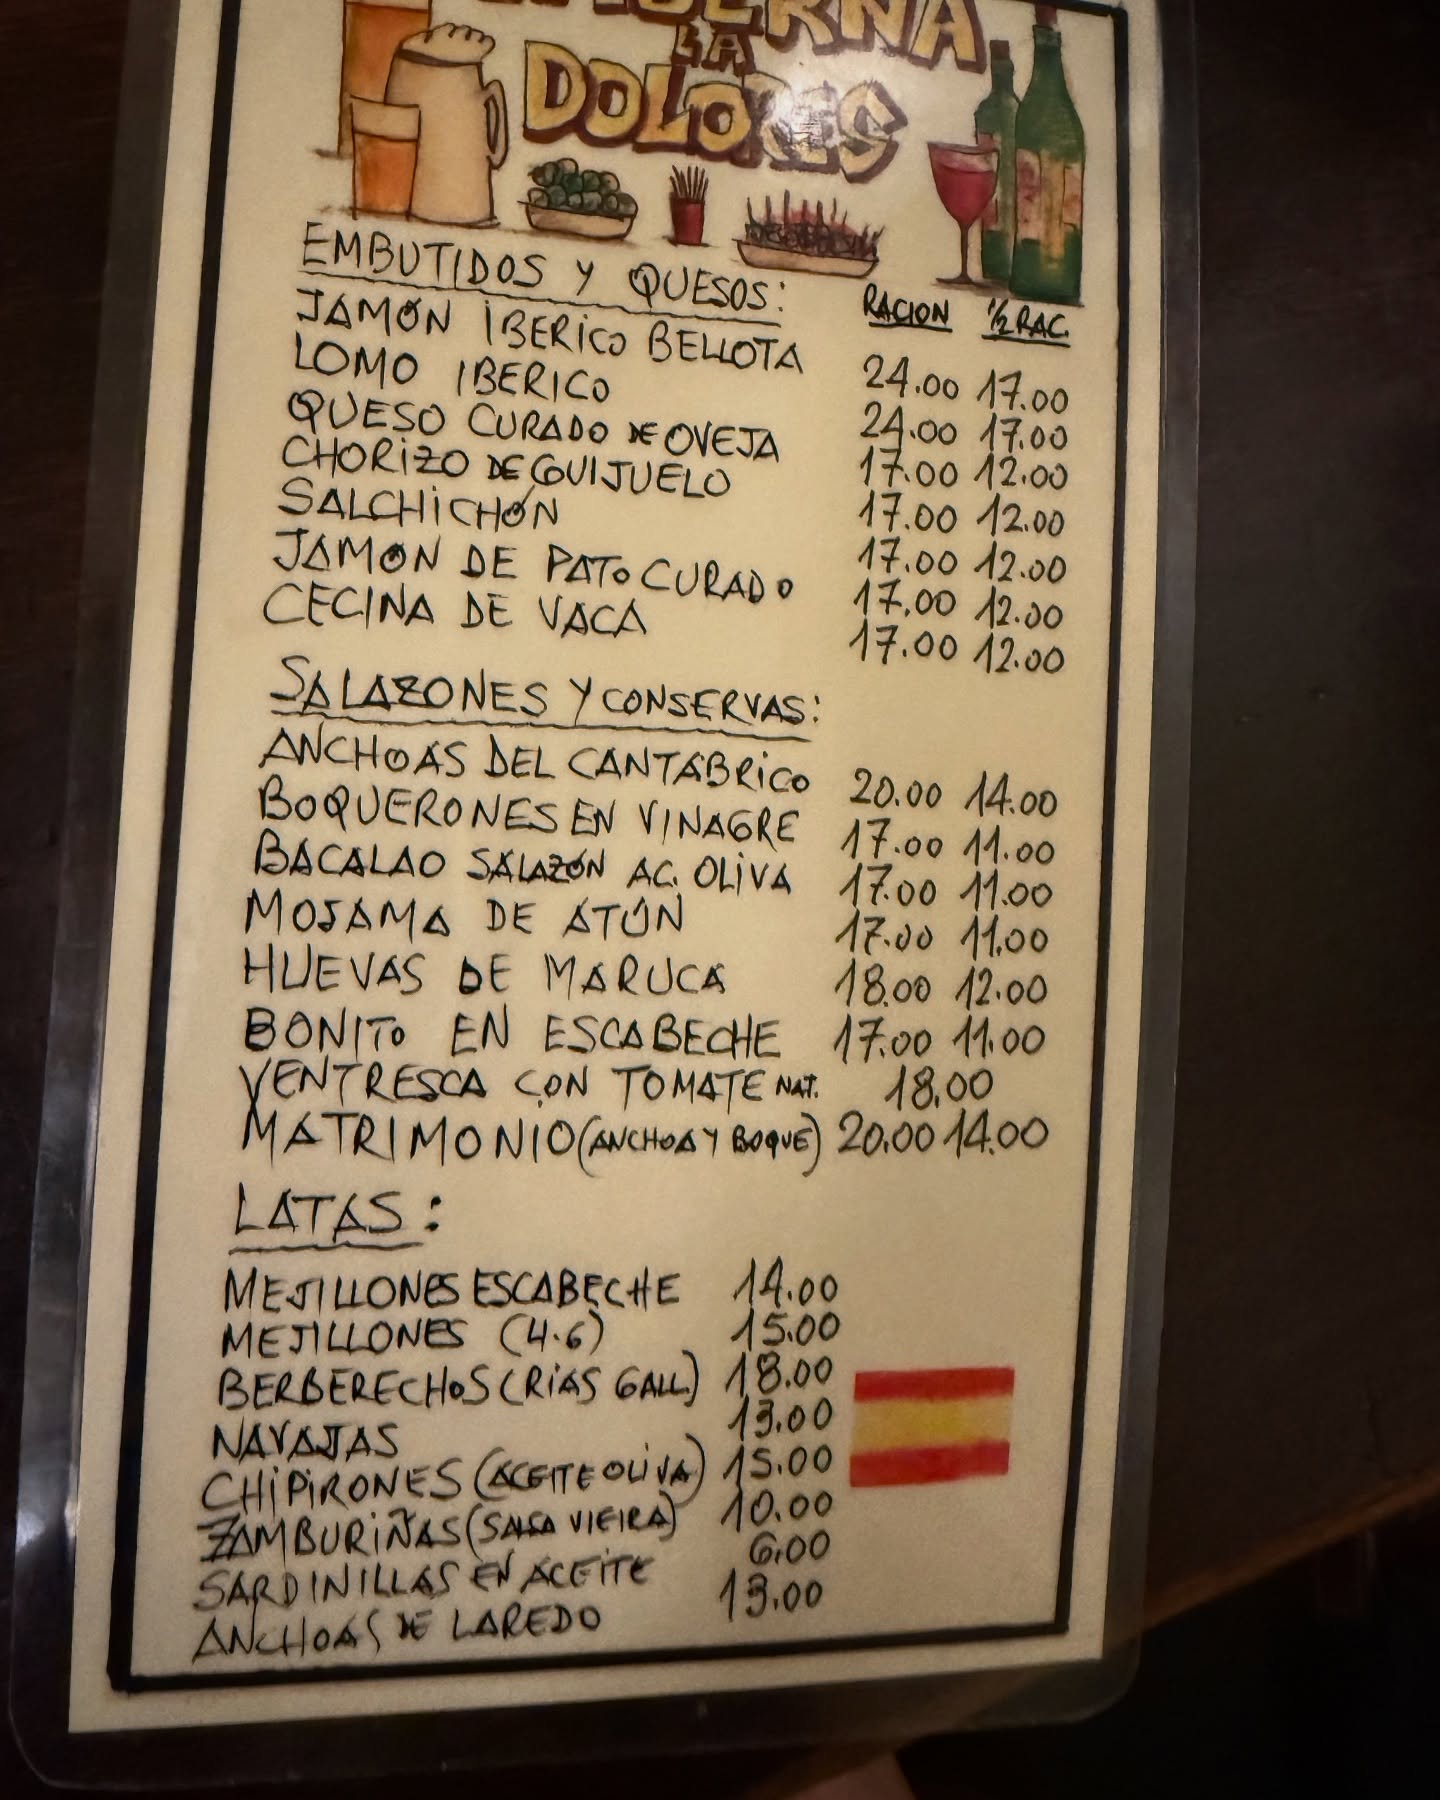 TABERNA
LA
DOLORES
EMBUTIDOS Y QUESOS: RACION 1/2 RAC.
JAMÓN IBERICO BELLOTA 24.00 17.00
LOMO IBERICO 24.00 17.00
QUESO CURADO DE OVEJA 17.00 12.00
CHORIZO DE GUIJUELO 17.00 12.00
SALCHICHÓN 17.00 12.00
JAMON DE PATO CURADO 17.00 12.00
CECINA DE VACA 17.00 12.00
SALAZONES Y CONSERVAS:
ANCHOAS DEL CANTÁBRICO 20.00 14.00
BOQUERONES EN VINAGRE 17.00 11.00
BACALAO SALAZÓN AC. OLIVA 17.00 11.00
MOJAMA DE ATÚN 17.00 11.00
HUEVAS DE MARUCA 18.00 12.00
BONITO EN ESCABECHE 17.00 11.00
VENTRESCA CON TOMATE NAT. 18.00
MATRIMONIO (ANCHOA Y BOQUE) 20.00 14.00
LATAS:
MEJILLONES ESCABECHE 14.00
MEJILLONES (4-6) 15.00
BERBERECHOS (RIAS GALL.) 18.00
NAVAJAS 13.00
CHIPIRONES (ACEITE OLIVA) 15.00
ZAMBURIÑAS (SALSA VIEIRA) 10.00
SARDINILLAS EN ACEITE 6.00
ANCHOAS DE LAREDO 13.00